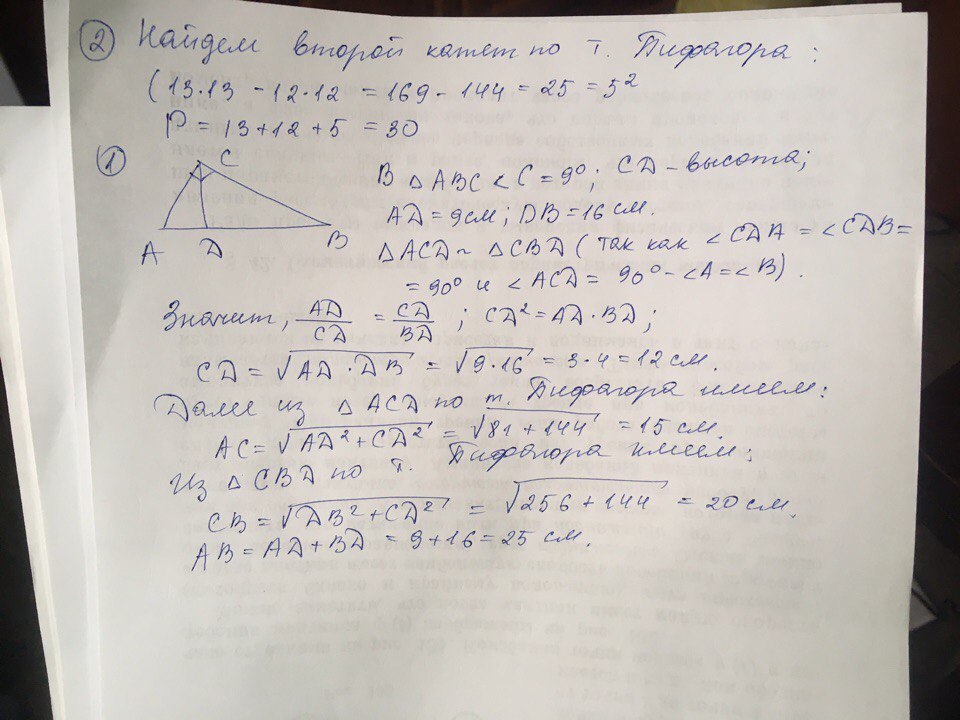 ② Найдем второй катет по т. Пифагора:
(13·13 - 12·12 = 169 - 144 = 25 = 5²
P = 13 + 12 + 5 = 30
①
C
A D B
В △ABC <C = 9⁰; CD - высота;
AD = 9см; DB = 16 см.
△ACD ~ △CBD (так как <CDA = <CDB =
= 90⁰ и <ACD = 90⁰ - <A = <B).
Значит, AD/CD = CD/BD; CD² = AD·BD;
CD = √(AD·DB) = √(9·16) = 3·4 = 12 см.
Далее из △ACD по т. Пифагора имеем:
AC = √(AD² + CD²) = √(81 + 144) = 15 см.
Из △CBD по т. Пифагора имеем:
CB = √(DB² + CD²) = √(256 + 144) = 20 см.
AB = AD + BD = 9 + 16 = 25 см.